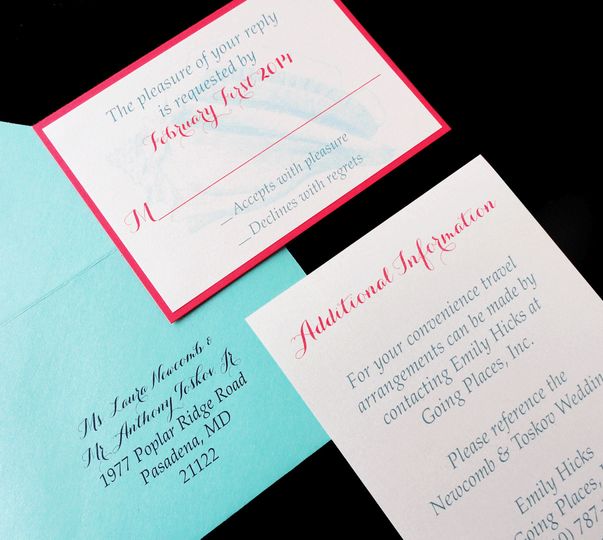 The pleasure of your reply
is requested by
February First 2014
M
_Accepts with pleasure
_Declines with regrets
Ms Laura Newcomb &
Mr Anthony Toskov Jr
1977 Poplar Ridge Road
Pasadena, MD
21122
Additional Information
For your convenience travel
arrangements can be made by
contacting Emily Hicks at
Going Places, Inc.
Please reference the
Newcomb & Toskov Weddin
Emily Hicks
Going Places,
0) 787-